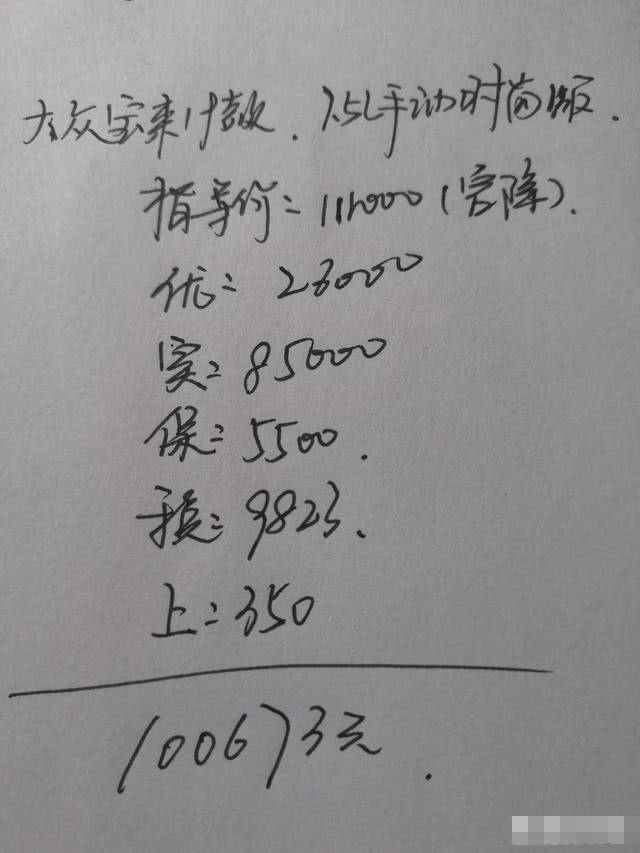 大众宝来19款. 1.5L手动时尚版.
指导价=111000(官降).
优= 26000
实=85000
保=5500.
税=9823.
上=350
100673元.